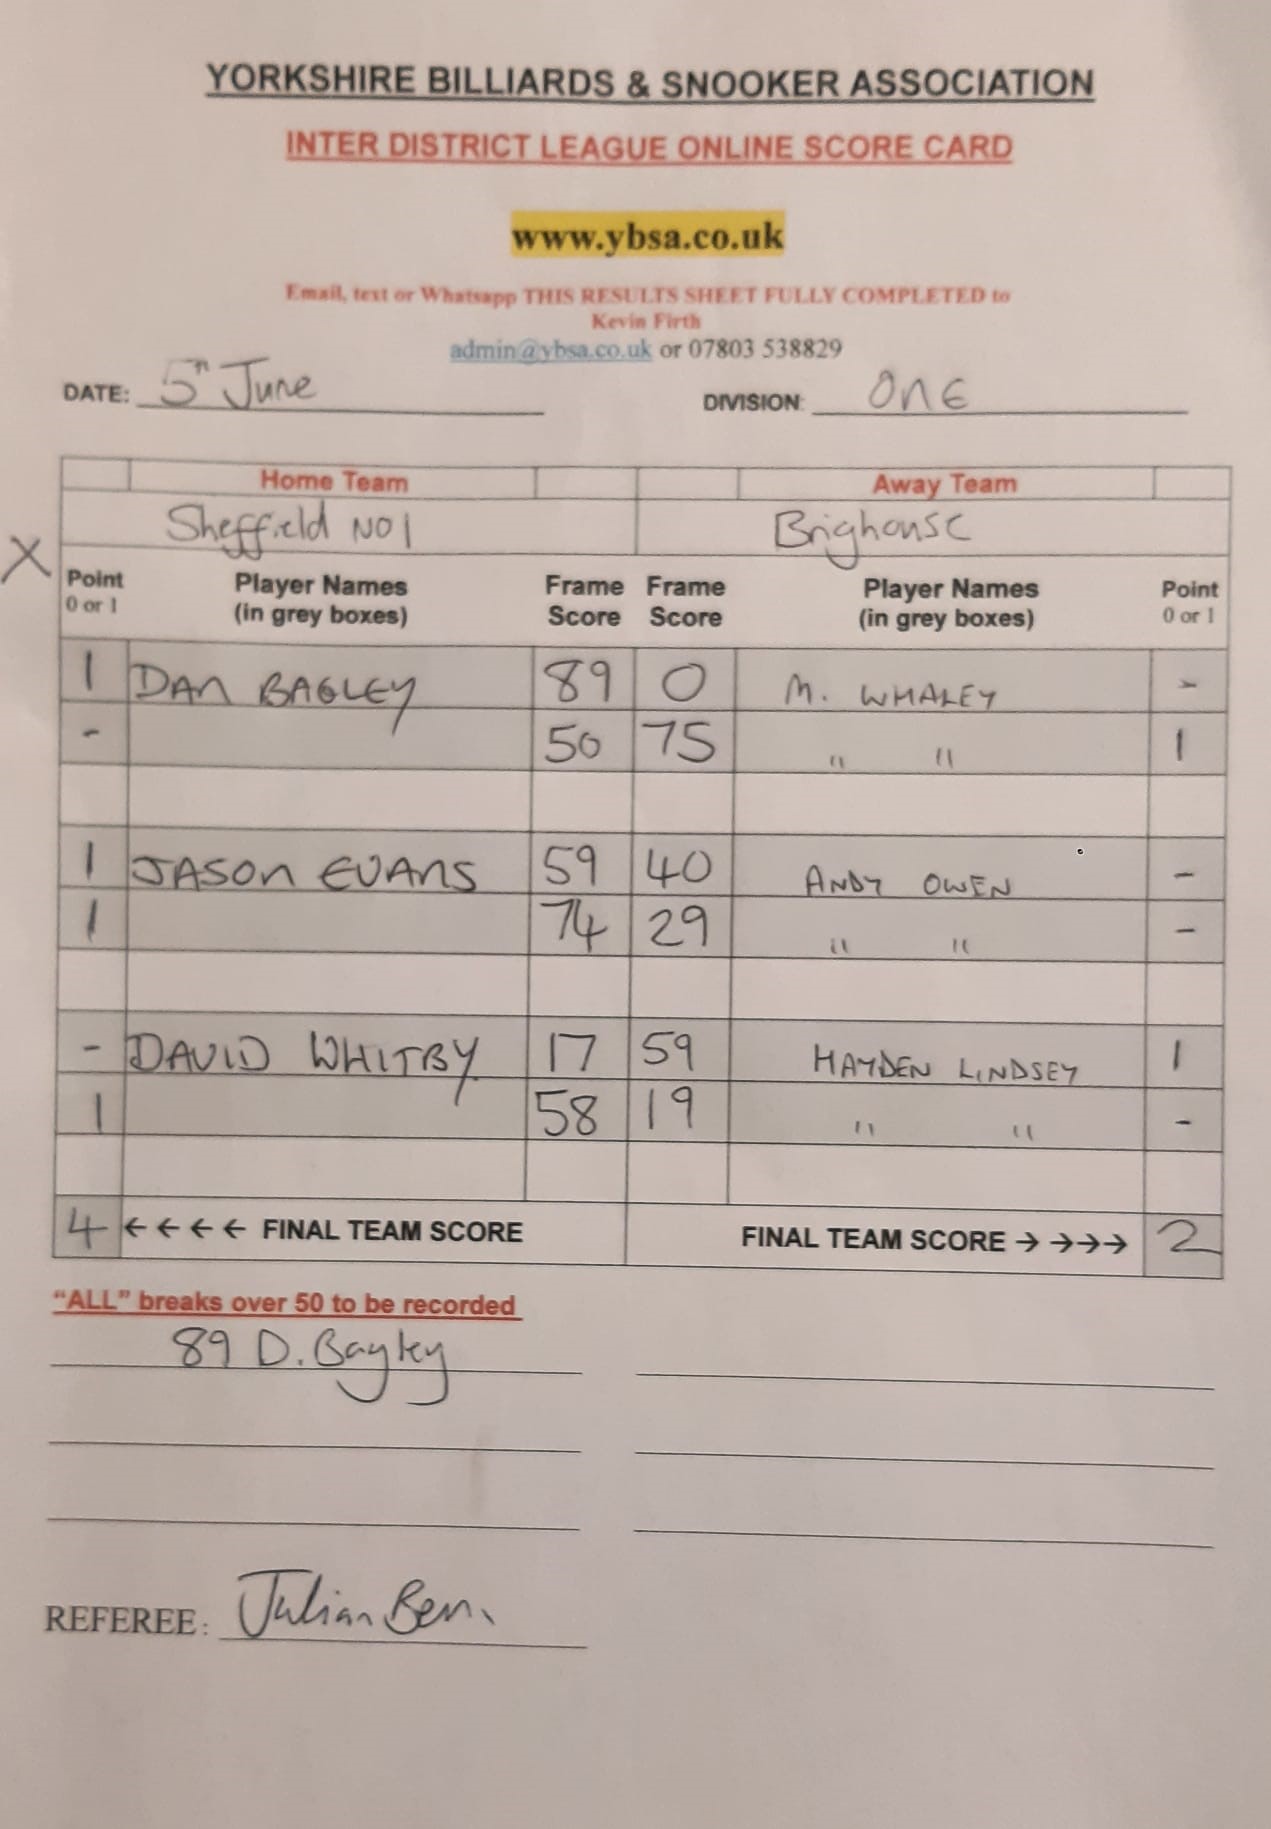 YORKSHIRE BILLIARDS & SNOOKER ASSOCIATION
INTER DISTRICT LEAGUE ONLINE SCORE CARD
www.ybsa.co.uk
Email, text or Whatsapp THIS RESULTS SHEET FULLY COMPLETED to
Kevin Firth
admin@ybsa.co.uk or 07803 538829
DATE: 5th June DIVISION: ONE
Home Team Away Team
Sheffield NO1 Brighouse
X
Point Player Names Frame Frame Player Names Point
0 or 1 (in grey boxes) Score Score (in grey boxes) 0 or 1
1 DAN BAGLEY 89 0 M. WHALEY -
- 50 75 " " 1
1 JASON EVANS 59 40 ANDY OWEN -
1 74 29 " " -
- DAVID WHITBY 17 59 HAYDEN LINDSEY 1
1 58 19 " " -
4 ← ← ← ← FINAL TEAM SCORE FINAL TEAM SCORE → →→→ 2
"ALL" breaks over 50 to be recorded
89 D. Bagley
REFEREE: Julian